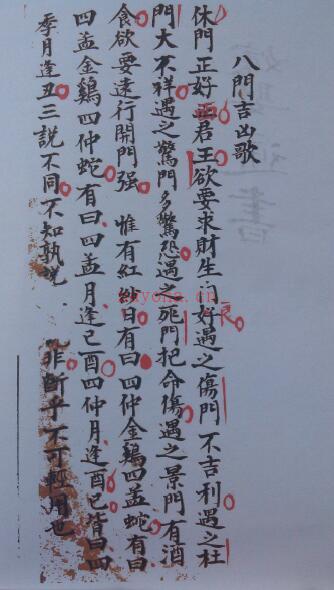 八門吉凶歌
休門正好面君王欲要求財生门好遇之傷門不吉利遇之杜
良
門大不祥遇之驚門多驚恐遇之死門把命傷遇之景門有酒
食欲要遠行開門强　惟有紅紗日有曰四仲金鷄四孟蛇有曰
四孟金鷄四仲蛇有曰四孟月逢己酉四仲月逢酉巳皆曰四
季月逢丑三説不同不知孰説　非斷乎不可輕用也